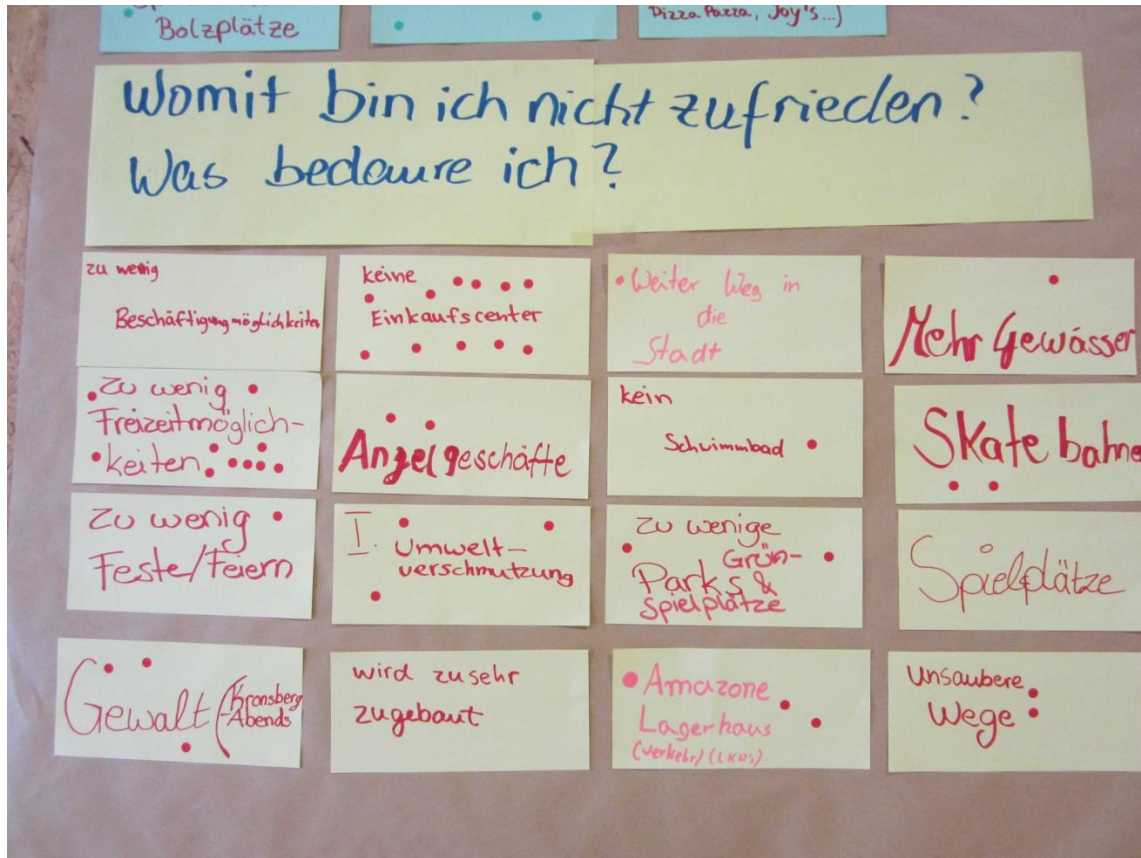 Bolzplätze
Pizza Pazza, Joy's...)
Womit bin ich nicht zufrieden?
Was bedaure ich?
zu wenig
Beschäftigungmöglichkeiten
keine
Einkaufscenter
Weiter Weg in
die
Stadt
Mehr Gewässer
Zu wenig
Freizeitmöglich-
keiten
Angelgeschäfte
kein
Schwimmbad
Skate bahne
Zu wenig
Feste/Feiern
I.
Umwelt-
verschmutzung
Zu wenige
Grün-
Parks &
Spielplätze
Spielplätze
Gewalt (Kronsberg
-Abends
wird zu sehr
zugebaut
Amazone
Lagerhaus
(Verkehr) (LKW's)
Unsaubere
Wege